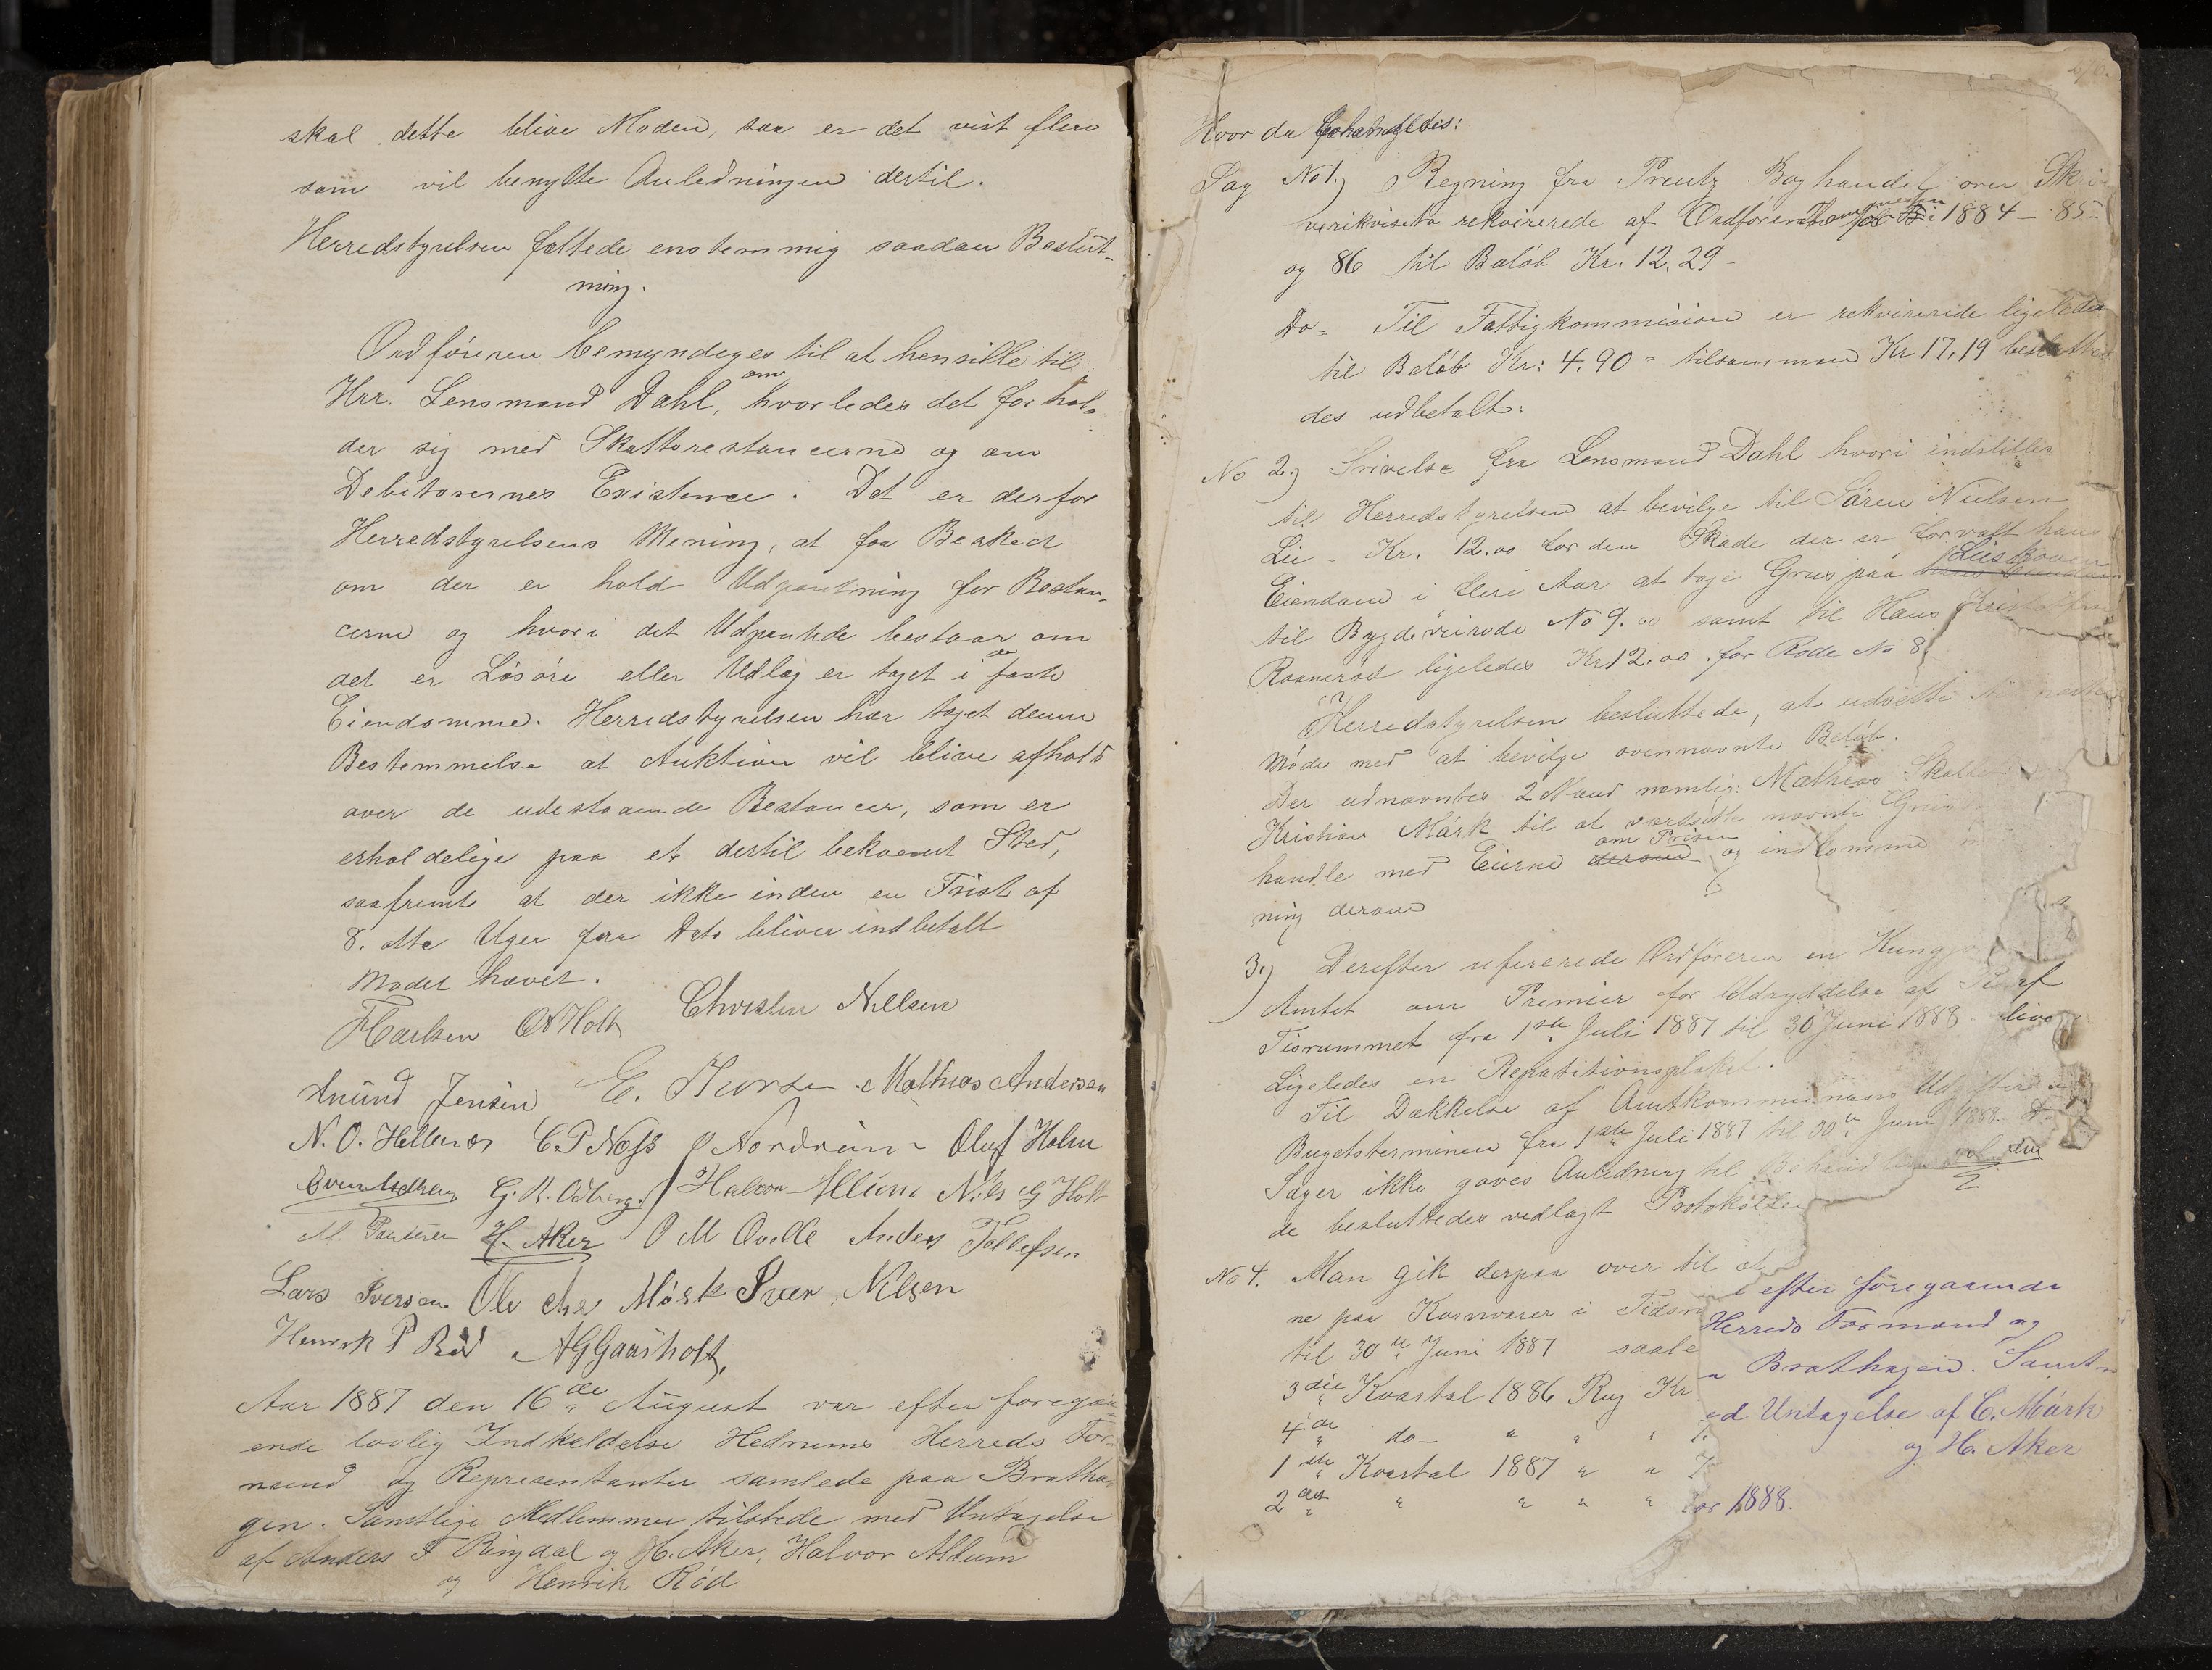 skal dette blive Moden, saa er det vist flere
som vil benytte Anledningen dertil.
Herredstyrelsen fattede enstemmig saadan Beslut-
ning.
Ordföreren bemyndiges til at henstille til
om
Hrr. Lensmand Dahl, hvorledes det forhol-
der sig med Skatterestancerne og om
Debitorernes Existence. Det er derfor
Herredstyrelsens Mening, at faa Besked
om der er hold Udpantning for Restan-
cerne og hvori det Udpantede bestaar om
de
det er Løsøre eller Udlæg er taget i faste
Eiendomme. Herredstyrelsen har taget denne
Bestemmelse at Auktion vil blive afholdt
over de udestaaende Restancer, som er
erholdelige paa et dertil bekvemt Sted,
saafremt at der ikke inden en Frist af
8. otte Uger fra Dato bliver indbetalt
Mødet hævet.
FCarlsen OAHolt Christen Nillsen
Amund Jensen E. Mathias Andersen
N. O. Hellenes C. P. Nøss O Nordrum Oluf Holm
G. K. Odberg. Halvor Allum Nils G Holt
M. Paulsen H. Aker O M Qvelle Anders Tollefsen
Lars Iversen Ole Chr Mørk Iver Nilsen
Henrik P Rød AGGaasholt,
Aar 1887 den 16de August var efter foregaa-
ende lovlig Indkaldelse Hedrums Herreds For-
mænd og Representanter samlede paa Bratha-
gen. Samtlige Medlemmer tilstede med Untagelse
af Anders F Ringdal og H. Aker, Halvor Allum
og Henrik Rød
Hvor da behandledes:
Sag No 1) Regning fra Preutz Boghandel over Skri-
verikvisita rekvirerede af Ordföreren i 1884 - 85 -
og 86 til Beløb Kr. 12.29 -
Do - Til Fattigkommision er rekvirerede ligeledes
til Beløb Kr: 4.90 - tilsammen Kr 17,19 beslutte
des udbetalt.
No 2) Srivelse fra Lensmand Dahl hvori indstilles
til Herredstyrelsen at bevilge til Sören Nielsen
Lie - Kr. 12.00 for den Skade der er forvolt hans
Eiendom i flere Aar at tage Grus paa Lieskoven
til Bygdeveirode No 9.00 samt til Hans Kristoffer
Raanerød ligeledes Kr 12.00 for Rode No 8
Herredstyrelsen besluttede, at udsette til næste
Møde med at bevilge ovennævnte Beløb.
Der udnævntes 2 Mænd nemlig: Mathias
Kristian Märk til at værdsette nævnte Grus
om Prisen
handle med Eierne derom og indkomme
ning derom
3) Derefter refererede Ordföreren en Kungj
Amtet om Premier for Udryddelse af
Tisrummet fra 1ste Juli 1887 til 30 Juni 1888
Ligeledes en Repatitionsplakat.
Til Dækkelse af Amtkommunens Udgifter
Bugetsterminen fra 1ste Juli 1887 til 30te Juni 1888.
Sager ikke gaves Anledning til Behandling
de besluttedes vedlagt Protokollen
No 4. Man gik derpaa over til at
ne paa Kornvarer i Tidsr
til 30te Juni 1887 saale
3die Kvartal 1886 Rug Kr
4de do - " " "
1ste Kvartal 1887 " " 7
2det " " " "
efter föregaaende
Herreds Formænd og
Brathagen. Samt-
ed Untagelse af C. Märk
og H. Aker
for 1888.